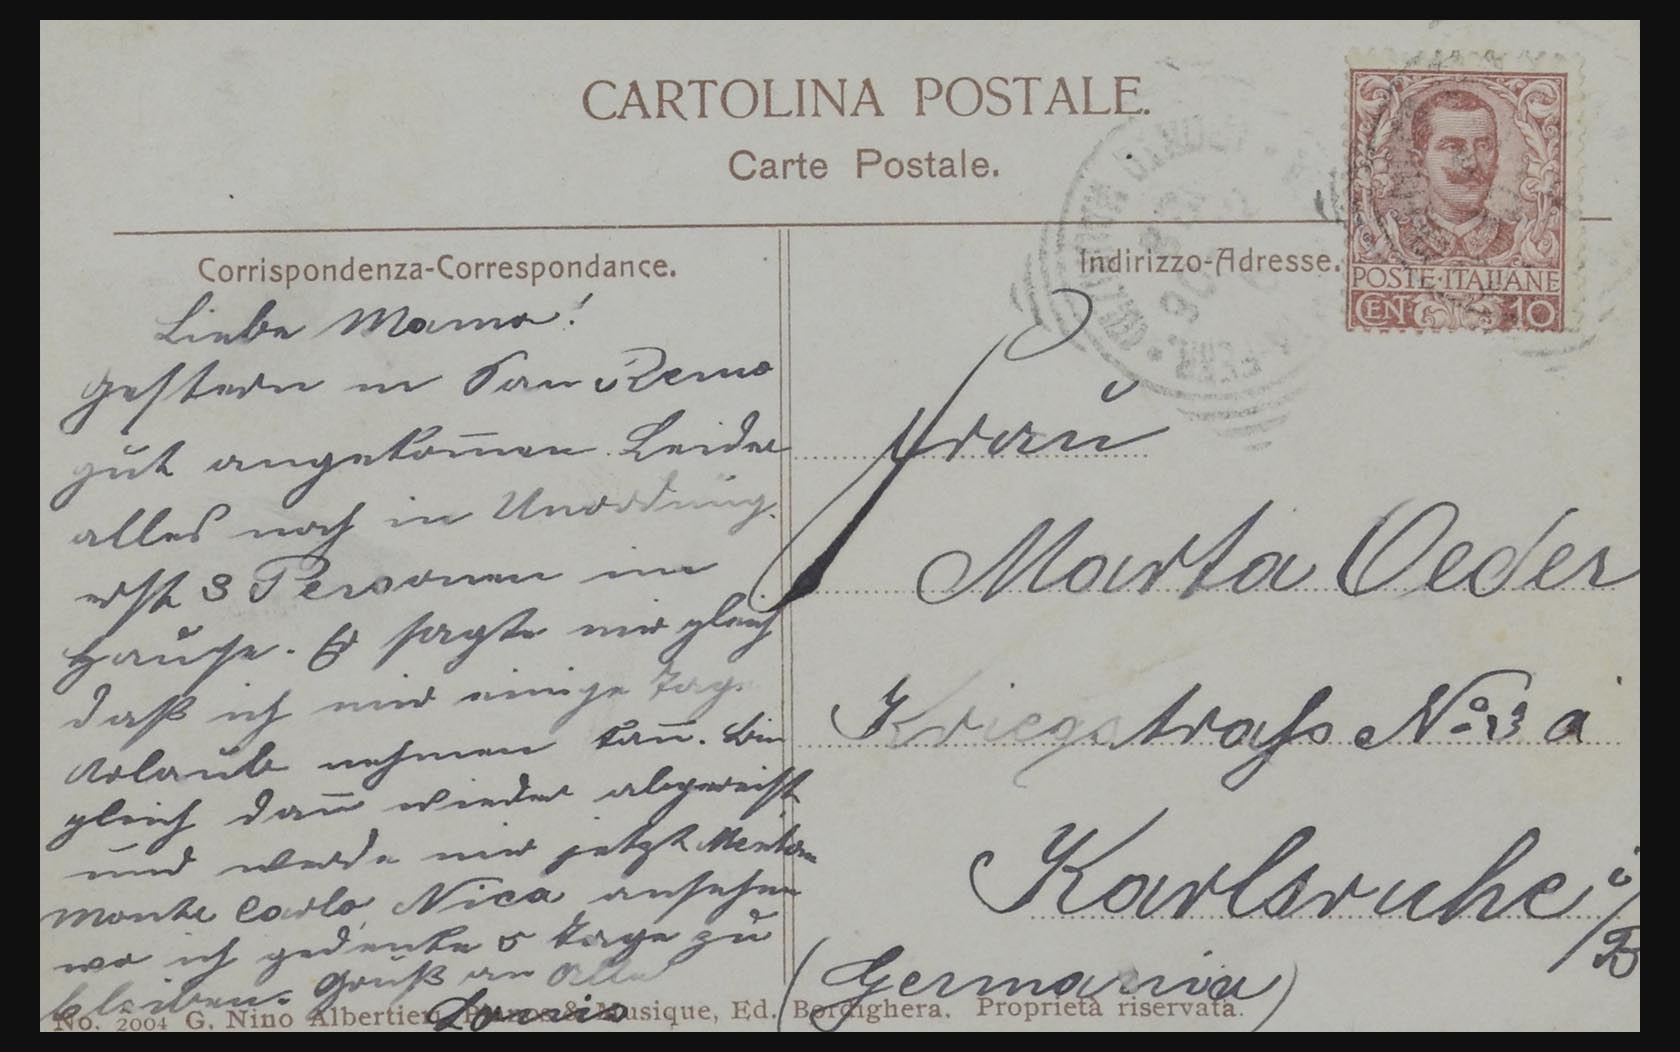 CARTOLINA POSTALE.
Carte Postale.
Corrispondenza-Correspondance.
Indirizzo-Adresse.
POSTE·ITALIANE
CENT 10
Liebe Mama!
Gestern in San Remo
gut angekom̅en. Leider
alles noch in Unordnung.
erst 3 Personen im
Hause. Er sagte mir gleich
daß ich mir einige Tage
Urlaub nehmen kan̅. Bin
gleich dan̅ wieder abgereist
und werde mir jetzt Menton
Monte Carlo, Nica ansehen
wo ich gedenke 5 Tage zu
bleiben. Gruß an Alle
Frau
Marta Oeder
Kriegstrasse No 3 a
Karlsruhe i/B
(Germania)
No. 2004 G. Nino Albertieri, & Musique, Ed. Bordighera. Proprietà riservata.